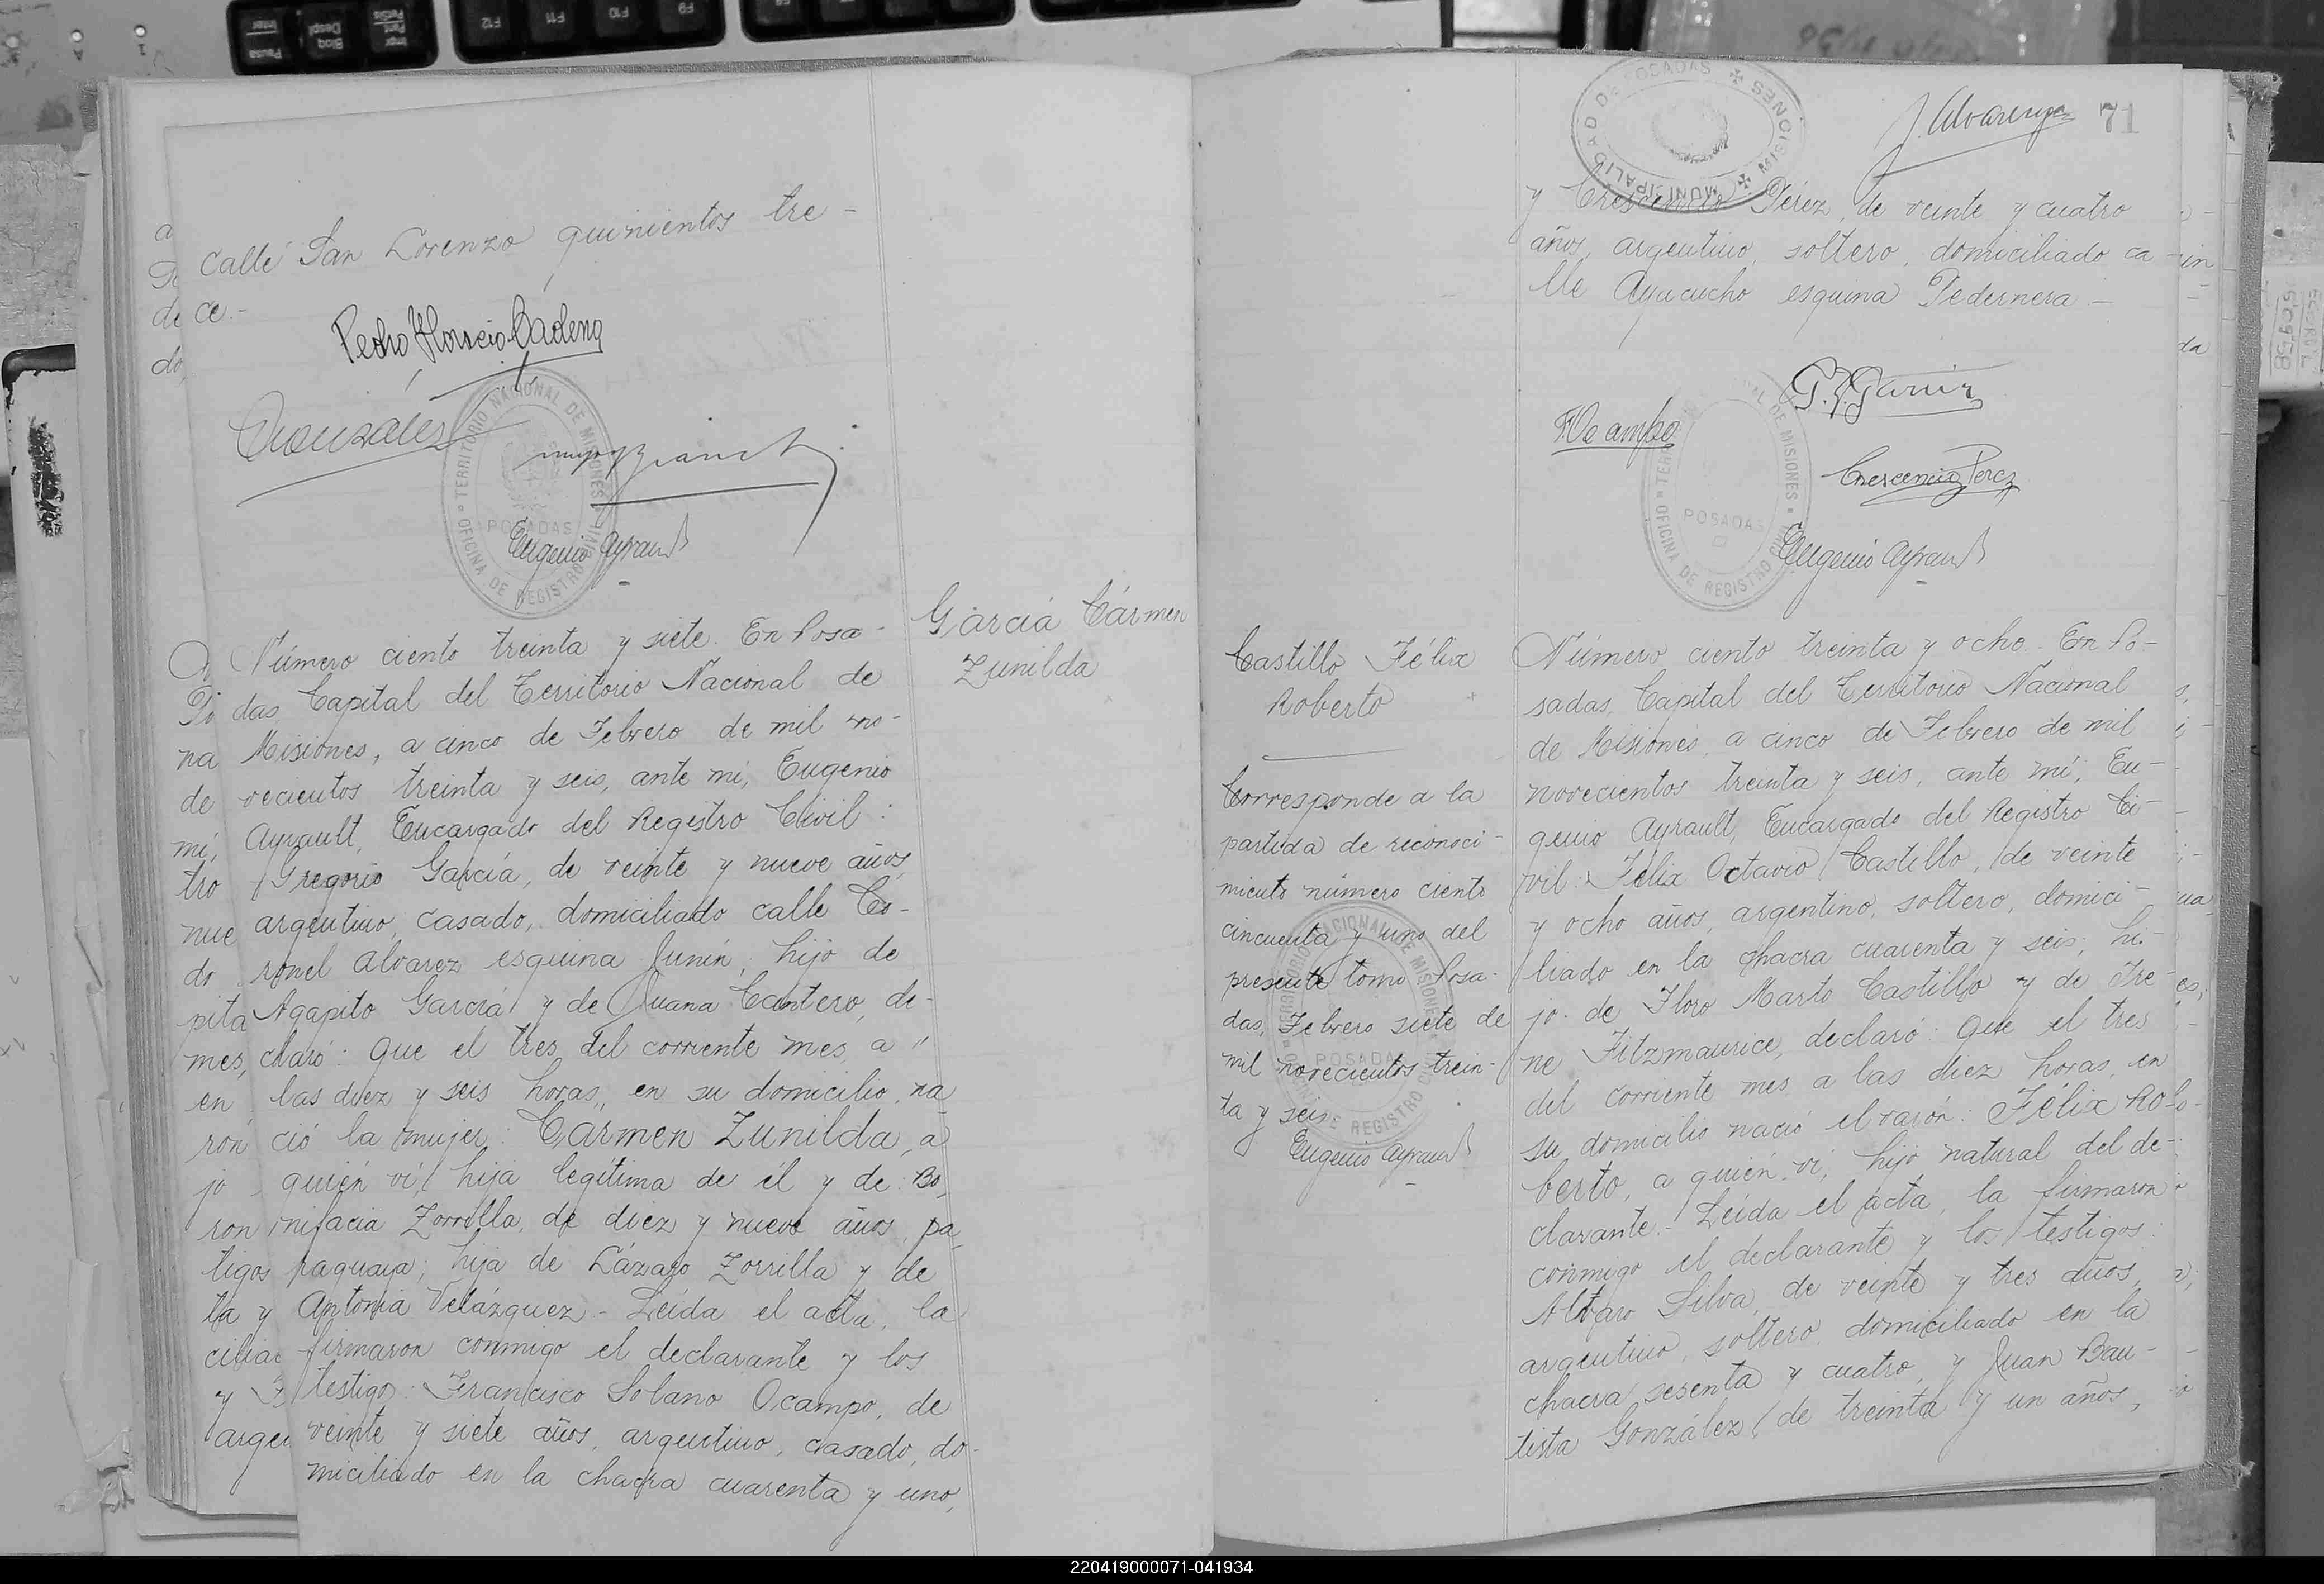 calle San Lorenzo quinientos tre-
ce.-
Pedro Horacio Cadena
González
Eugenio Ayrault
TERRITORIO NACIONAL DE MISIONES
POSADAS
OFICINA DE REGISTRO CIVIL
García Cármen
Zunilda
Número ciento treinta y siete. En Posa-
das, Capital del Territorio Nacional de
Misiones, a cinco de Febrero de mil no-
vecientos treinta y seis, ante mí, Eugenio
Ayrault, Encargado del Registro Civil:
Gregorio García, de veinte y nueve años,
argentino, casado, domiciliado calle Co-
ronel Alvarez esquina Junín, hijo de
Agapito García y de Juana Cantero, de-
claró: Que el tres del corriente mes a "
las diez y seis horas, en su domicilio, na
ció la mujer: Carmen Zunilda, a
quién ví, hija legítima de él y de: Bo-
nifacia Zorrilla, de diez y nueve años, pa-
raguaya; hija de Lázaro Zorrilla y de
Antonia Velázquez.- Leída el acta, la
firmaron conmigo el declarante y los
testigos: Francisco Solano Ocampo, de
veinte y siete años, argentino, casado, do-
miciliado en la chacra cuarenta y uno,
MUNICIPALIDAD DE POSADAS
MISIONES
J. Alvarenga
71
y Crescencio Pérez, de veinte y cuatro
años, argentino, soltero, domiciliado ca-
lle Ayacucho esquina Pedernera.-
F. Ocampo
G. García
Crescencio Perez
Eugenio Ayrault
TERRITORIO NACIONAL DE MISIONES
POSADAS
OFICINA DE REGISTRO CIVIL
Castillo Félix
Roberto
Corresponde a la
partida de reconoci-
miento número ciento
cincuenta y uno del
presente tomo. Posa-
das, Febrero siete de
mil novecientos trein-
ta y seis
Eugenio Ayrault
Número ciento treinta y ocho. En Po-
sadas, Capital del Territorio Nacional
de Misiones, a cinco de Febrero de mil
novecientos treinta y seis, ante mí, Eu-
genio Ayrault, Encargado del Registro Ci-
vil: Félix Octavio Castillo, de veinte
y ocho años, argentino, soltero, domici-
liado en la chacra cuarenta y seis, hi-
jo de Floro Marto Castillo y de Ire-
ne Fitzmaurice, declaró: Que el tres
del corriente mes a las diez horas, en
su domicilio nació el varón: Félix Ro-
berto, a quién ví, hijo natural del de-
clarante.- Leída el acta, la firmaron
conmigo el declarante y los testigos:
Alvaro Silva, de veinte y tres años,
argentino, soltero, domiciliado en la
chacra sesenta y cuatro, y Juan Bau-
tista González, de treinta y un años,
220419000071-041934